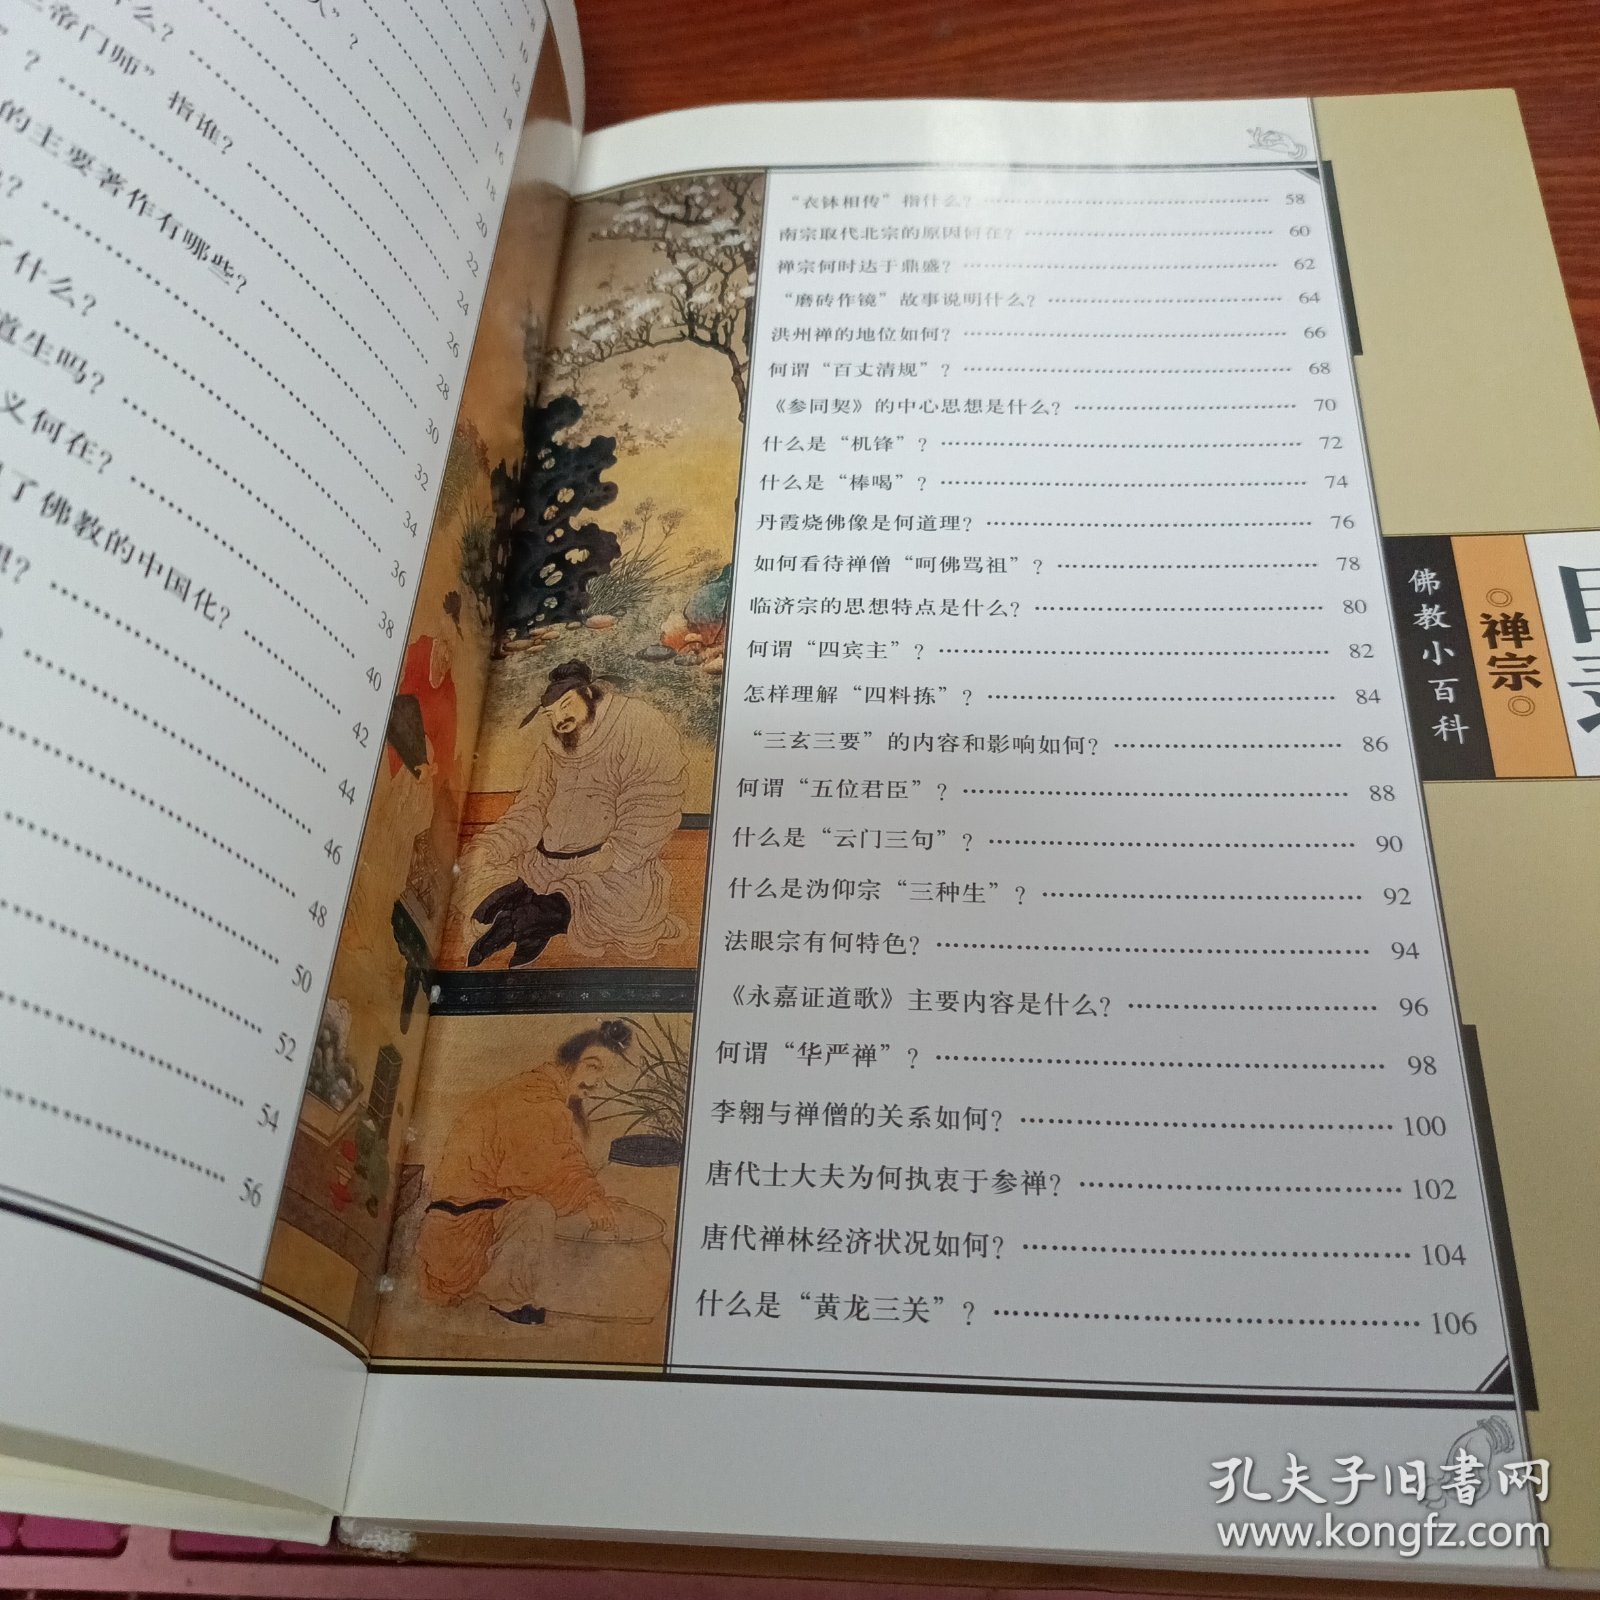 什么？
人”？
帝门师”指谁？
”？
的主要著作有哪些？
了什么？
道生吗？
义何在？
了佛教的中国化？
8
10
12
14
16
18
20
22
24
26
28
30
32
34
36
38
40
42
44
46
48
50
52
54
56
“衣钵相传”指什么？ 58
南宗取代北宗的原因何在？ 60
禅宗何时达于鼎盛？ 62
“磨砖作镜”故事说明什么？ 64
洪州禅的地位如何？ 66
何谓“百丈清规”？ 68
《参同契》的中心思想是什么？ 70
什么是“机锋”？ 72
什么是“棒喝”？ 74
丹霞烧佛像是何道理？ 76
如何看待禅僧“呵佛骂祖”？ 78
临济宗的思想特点是什么？ 80
何谓“四宾主”？ 82
怎样理解“四料拣”？ 84
“三玄三要”的内容和影响如何？ 86
何谓“五位君臣”？ 88
什么是“云门三句”？ 90
什么是沩仰宗“三种生”？ 92
法眼宗有何特色？ 94
《永嘉证道歌》主要内容是什么？ 96
何谓“华严禅”？ 98
李翱与禅僧的关系如何？ 100
唐代士大夫为何执衷于参禅？ 102
唐代禅林经济状况如何？ 104
什么是“黄龙三关”？ 106
佛教小百科
禅宗
孔夫子旧书网
www.kongfz.com